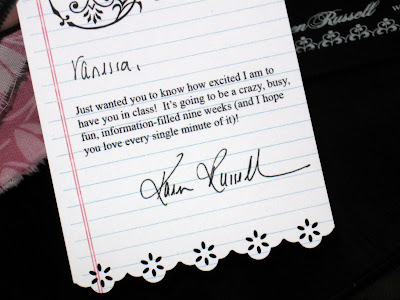 Vanessa,
Just wanted you to know how excited I am to
have you in class! It's going to be a crazy, busy,
fun, information-filled nine weeks (and I hope
you love every single minute of it)!
Karen Russell
en Russell
w